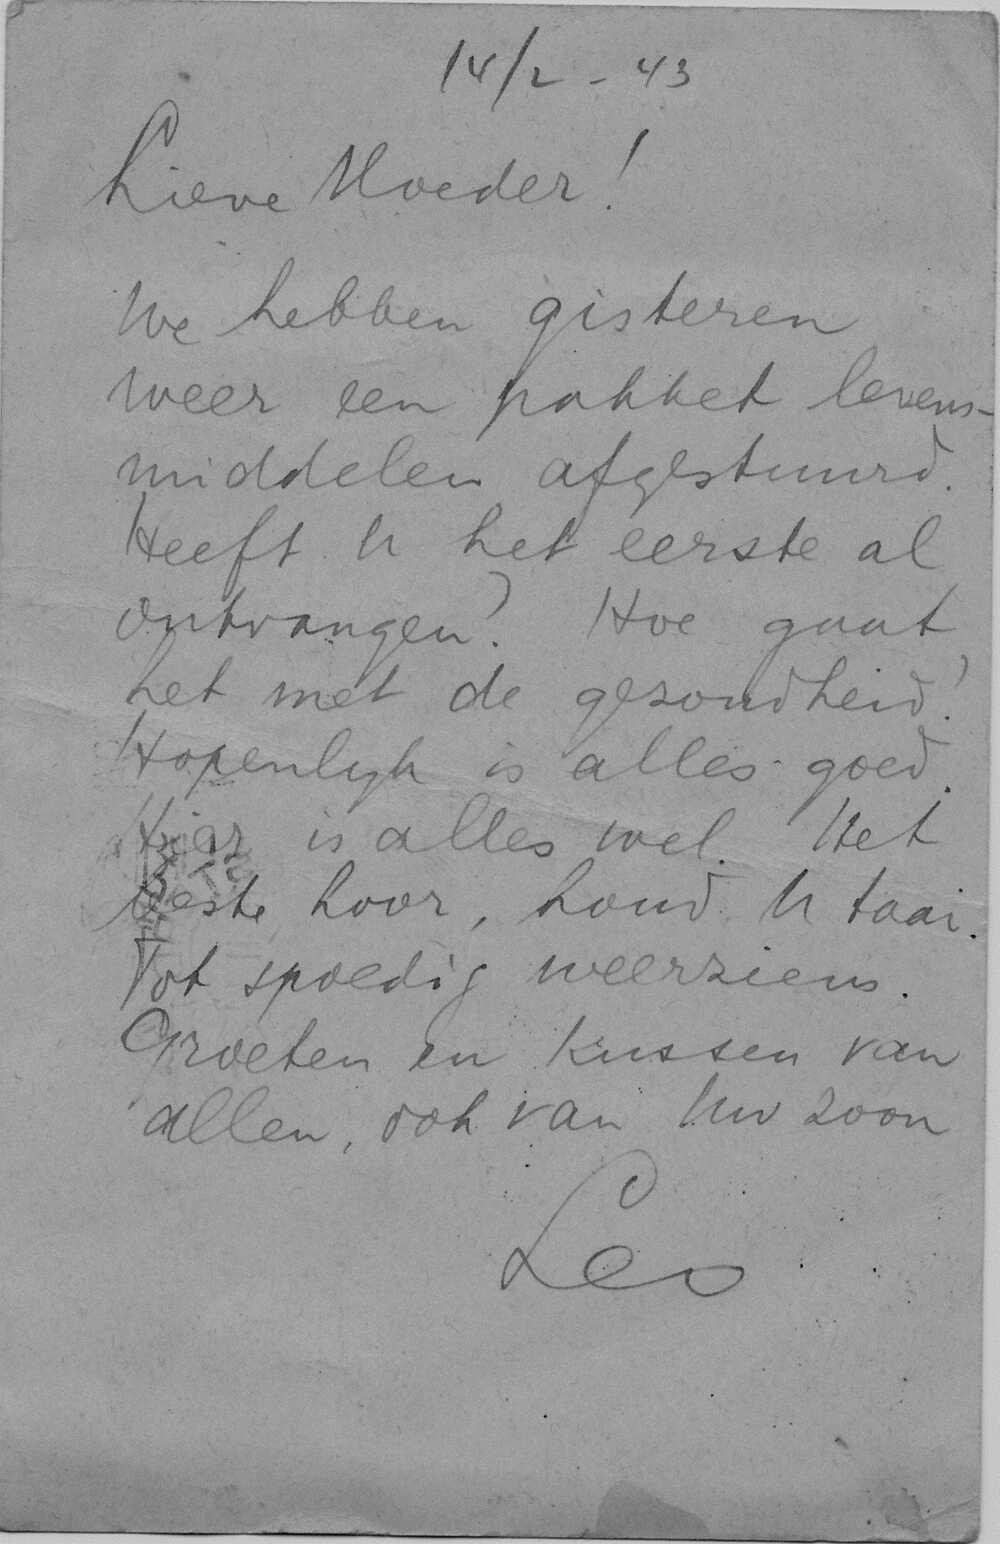 14/2 - 43
Lieve Moeder!
We hebben gisteren
weer een pakket levens-
middelen afgestuurd.
Heeft U het eerste al
ontvangen? Hoe gaat
het met de gezondheid?
Hopenlyk is alles goed.
Hier is alles wel. Het
beste hoor, houd U taai.
Tot spoedig weerziens.
Groeten en kussen van
allen, ook van Uw zoon
Leo